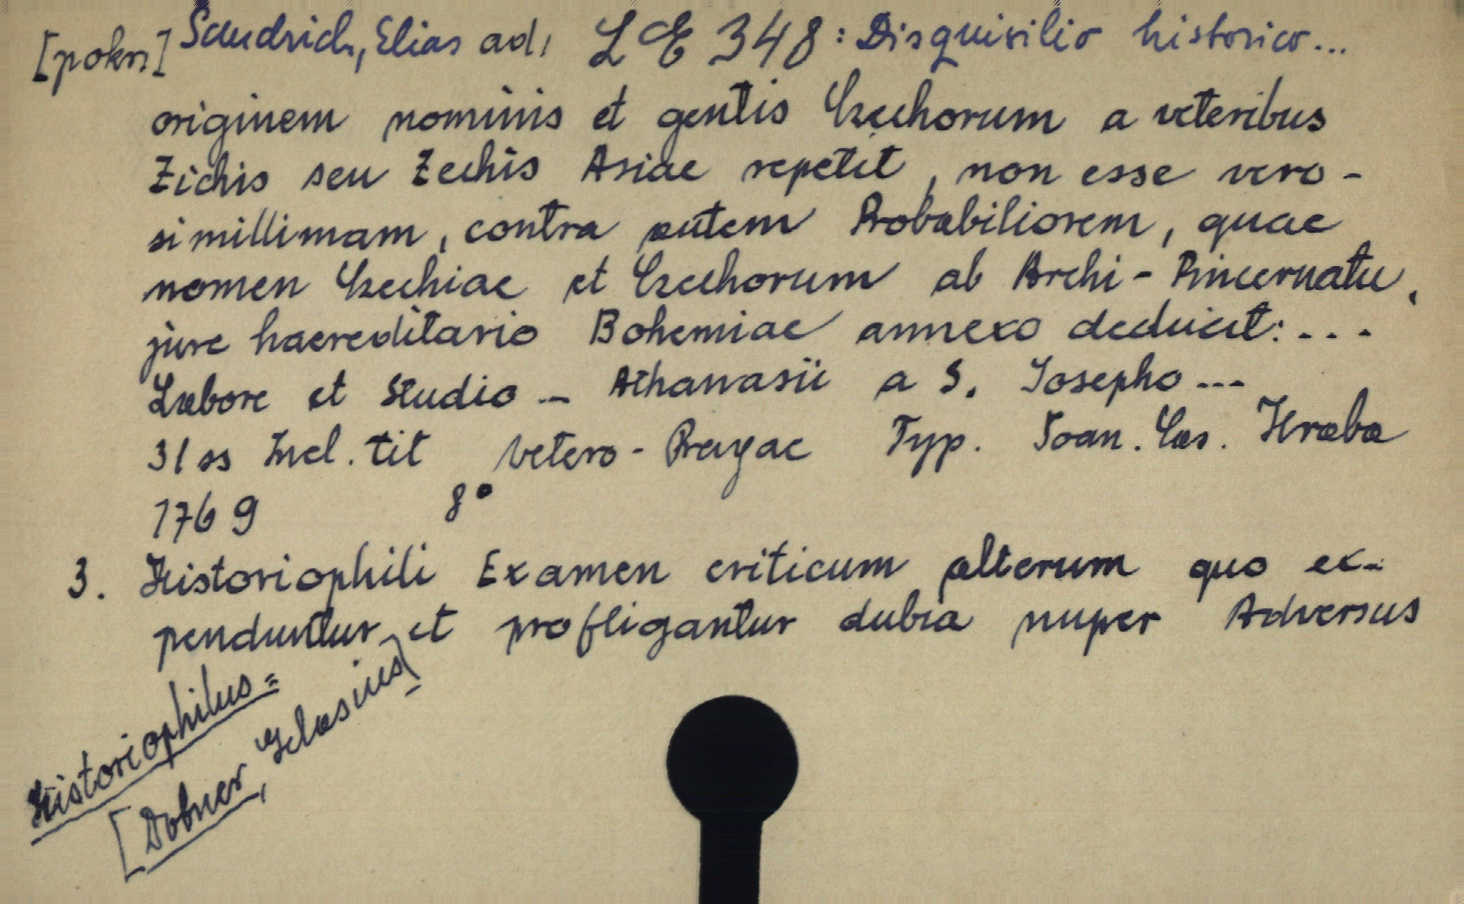 [pokr.] Sandrich, Elias ad, L E 348: Disquisitio historico...
originem nominis et gentis Czechorum a veteribus
Zichis seu Zechis Asiae repetit, non esse vero-
simillimam, contra autem Probabiliorem, quae
nomen Czechiae et Czechorum ab Archi-Pincernatu,
jure haereditario Bohemiae annexo deducit:...
Labore et Studio - Athanasii a S. Josepho...
31 ss Incl. tit Vetero-Pragae Typ. Joan. Cas. Hraba
1769 8°
3. Historiophili Examen criticum alterum quo ex-
penduntur et profligantur dubia nuper Adversus
Historiophilus=
[Dobner, Gelasius]